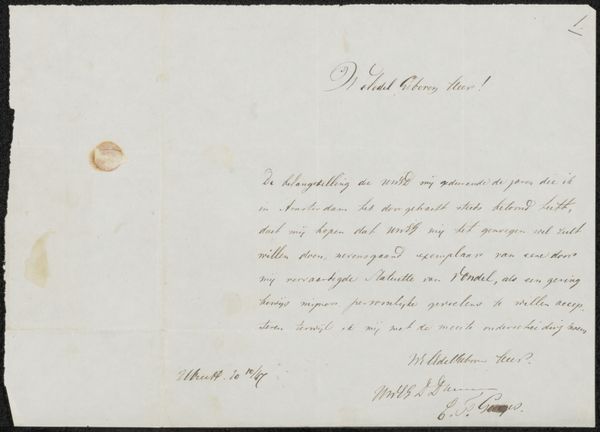 1.
WelEdel Geboren Heer!
De belangstelling die UWEd mij gedurende de jaren die ik
in Amsterdam heb doorgebracht steeds betoond heeft,
doet mij hopen dat UWEG mij het genoegen wel zult
willen doen, nevensgaand exemplaar van eene door
mij vervaardigde Statuette van Vondel, als een gering
bewijs mijner persoonlijke gevoelens te willen accep
teren terwijl ik mij met de meeste onderscheiding noem
WelEdelGeboren Heer.
Utrecht. 20 /47
UWEG D. Dienaar
E. F. Georges.